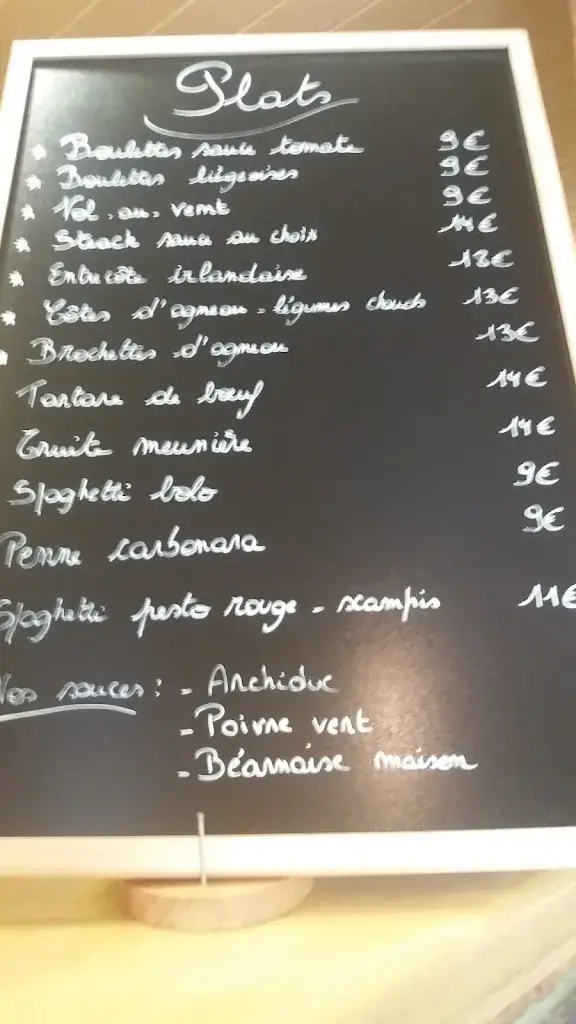 Plats
* Boulettes sauce tomate 9€
* Boulettes liégeoises 9€
* Vol.au.vent 9€
* Steack sauce au choix 14€
* Entrecôte irlandaise 18€
* Côtes d'agneau - légumes chauds 13€
* Brochettes d'agneau 13€
Tartare de bœuf 14€
Truite meunière 14€
Spaghetti bolo 9€
Penne carbonara 9€
Spaghetti pesto rouge - scampis 11€
Nos sauces : - Archiduc
- Poivre vert
- Béarnaise maison